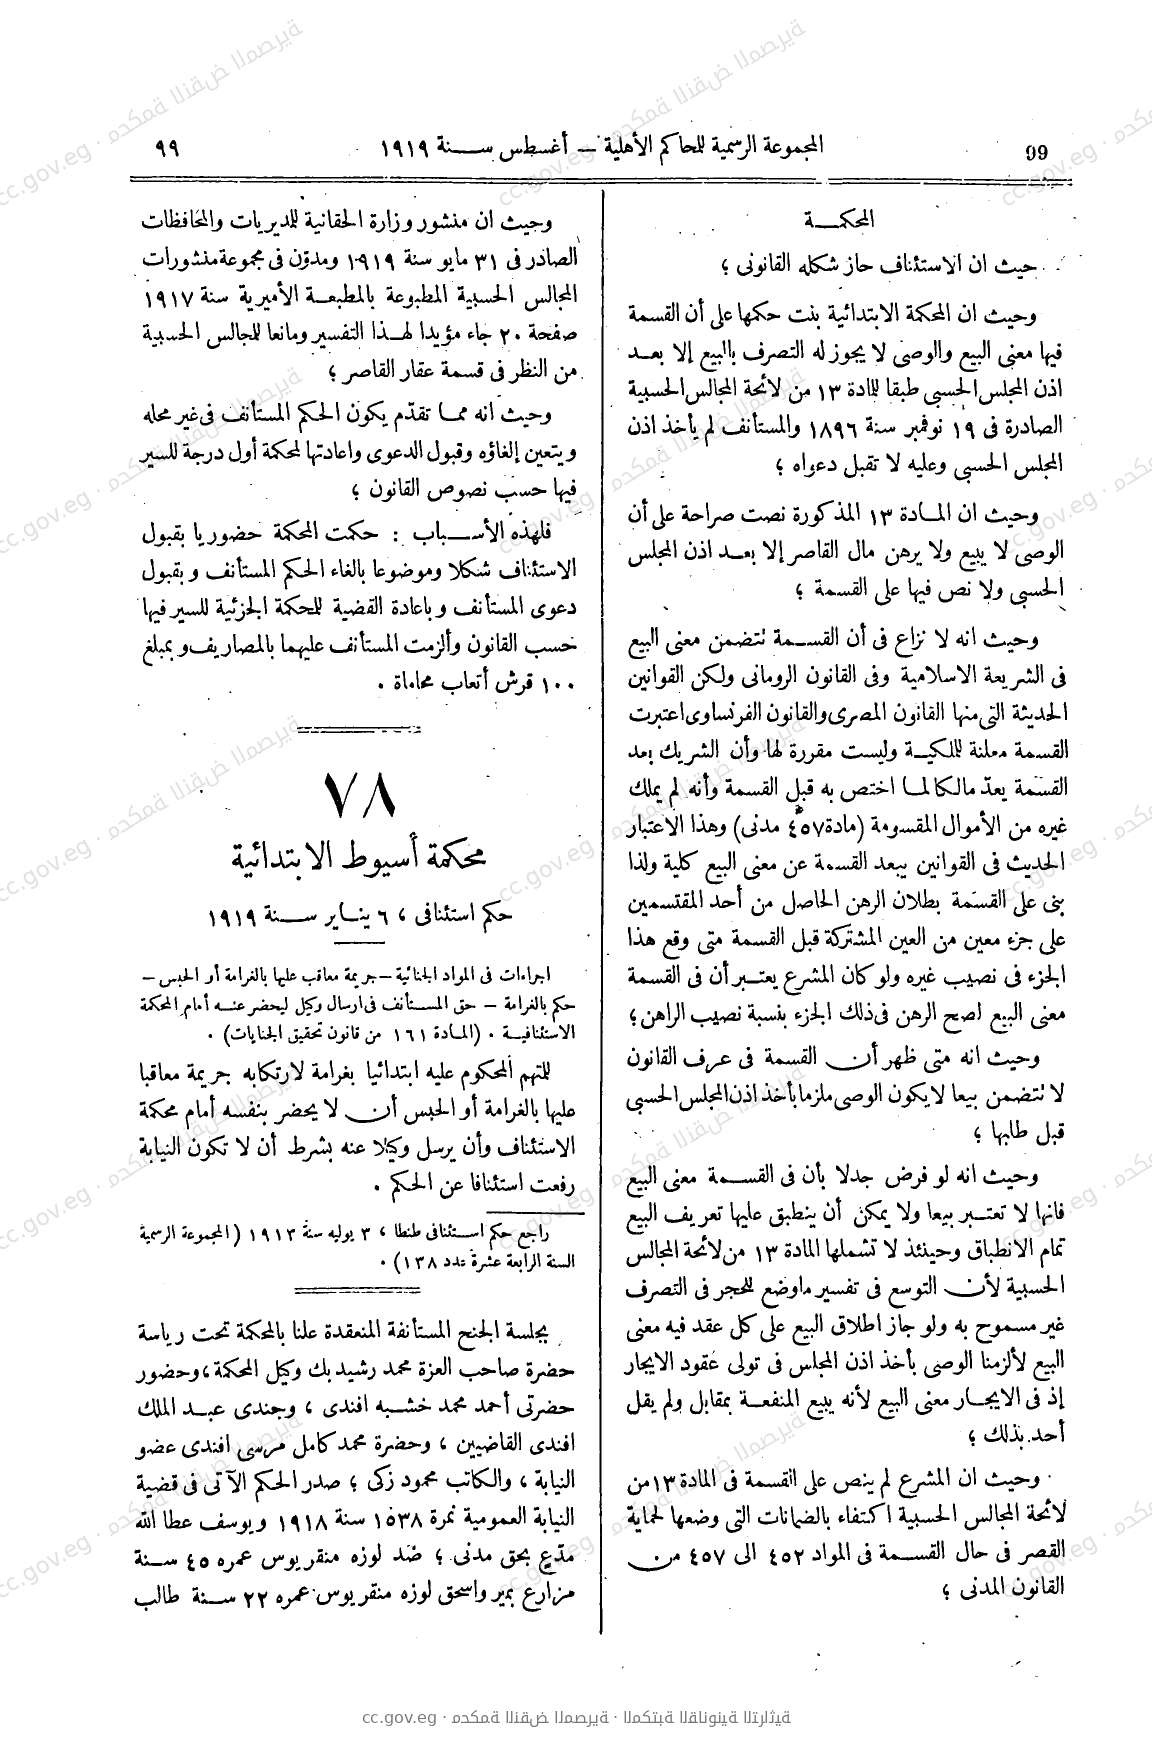 99
المجموعة الرسمية للمحاكم الأهلية — أغسطس سنة ١٩١٩
٩٩
المحكمة
حيث ان الاستئناف حاز شكله القانونى ؛
وحيث ان المحكمة الابتدائية بنت حكمها على أن القسمة
فيها معنى البيع والوصى لا يجوز له التصرف بالبيع إلا بعد
اذن المجلس الحسبى طبقا للمادة ١٣ من لائحة المجالس الحسبية
الصادرة فى ١٩ نوفمبر سنة ١٨٩٦ والمستأنف لم يأخذ اذن
المجلس الحسبى وعليه لا تقبل دعواه ؛
وحيث ان المادة ١٣ المذكورة نصت صراحة على أن
الوصى لا يبيع ولا يرهن مال القاصر إلا بعد اذن المجلس
الحسبى ولا نص فيها على القسمة ؛
وحيث انه لا نزاع فى أن القسمة تتضمن معنى البيع
فى الشريعة الاسلامية وفى القانون الرومانى ولكن القوانين
الحديثة التى منها القانون المصرى والقانون الفرنساوى اعتبرت
القسمة معلنة للملكية وليست مقررة لها وأن الشريك بعد
القسمة يعدّ مالكا لما اختص به قبل القسمة وأنه لم يملك
غيره من الأموال المقسومة (مادة ٤٥٧ مدنى) وهذا الاعتبار
الحديث فى القوانين يبعد القسمة عن معنى البيع كلية ولذا
بنى على القسمة بطلان الرهن الحاصل من أحد المقتسمين
على جزء معين من العين المشتركة قبل القسمة متى وقع هذا
الجزء فى نصيب غيره ولو كان المشرع يعتبر أن فى القسمة
معنى البيع لصح الرهن فى ذلك الجزء بنسبة نصيب الراهن ؛
وحيث انه متى ظهر أن القسمة فى عرف القانون
لا تتضمن بيعا لا يكون الوصى ملزما بأخذ اذن المجلس الحسبى
قبل طلبها ؛
وحيث انه لو فرض جدلا بأن فى القسمة معنى البيع
فانها لا تعتبر بيعا ولا يمكن أن ينطبق عليها تعريف البيع
تمام الانطباق وحينئذ لا تشملها المادة ١٣ من لائحة المجالس
الحسبية لأن التوسع فى تفسير ما وضع للحجر فى التصرف
غير مسموح به ولو جاز اطلاق البيع على كل عقد فيه معنى
البيع لألزمنا الوصى بأخذ اذن المجلس فى تولى عقود الايجار
إذ فى الايجار معنى البيع لأنه يبيع المنفعة بمقابل ولم يقل
أحد بذلك ؛
وحيث ان المشرع لم ينص على القسمة فى المادة ١٣ من
لائحة المجالس الحسبية اكتفاء بالضمانات التى وضعها لحماية
القصر فى حال القسمة فى المواد ٤٥٢ الى ٤٥٧ من
القانون المدنى ؛
وحيث ان منشور وزارة الحقانية للمديريات والمحافظات
الصادر فى ٣١ مايو سنة ١٩١٩ ومدوّن فى مجموعة منشورات
المجالس الحسبية المطبوعة بالمطبعة الأميرية سنة ١٩١٧
صفحة ٢٠ جاء مؤيدا لهذا التفسير ومانعا للمجالس الحسبية
من النظر فى قسمة عقار القاصر ؛
وحيث أنه مما تقدّم يكون الحكم المستأنف فى غير محله
ويتعين إلغاؤه وقبول الدعوى واعادتها لمحكمة أول درجة للسير
فيها حسب نصوص القانون ؛
فلهذه الأسباب : حكمت المحكمة حضوريا بقبول
الاستئناف شكلا وموضوعا بالغاء الحكم المستأنف وبقبول
دعوى المستأنف وباعادة القضية للمحكمة الجزئية للسير فيها
حسب القانون وألزمت المستأنف عليهما بالمصاريف وبمبلغ
١٠٠ قرش أتعاب محاماة .
٧٨
محكمة أسيوط الابتدائية
حكم استئنافى ، ٦ يناير سنة ١٩١٩
اجراءات فى المواد الجنائية — جريمة معاقب عليها بالغرامة أو الحبس —
حكم بالغرامة — حق المستأنف فى ارسال وكيل ليحضر عنه أمام المحكمة
الاستئنافية . (المادة ١٦١ من قانون تحقيق الجنايات) .
للمتهم المحكوم عليه ابتدائيا بغرامة لارتكابه جريمة معاقبا
عليها بالغرامة أو الحبس أن لا يحضر بنفسه أمام محكمة
الاستئناف وأن يرسل وكيلا عنه بشرط أن لا تكون النيابة
رفعت استئنافا عن الحكم .
راجع حكم استئنافى طنطا ، ٣ يوليه سنة ١٩١٣ (المجموعة الرسمية
السنة الرابعة عشرة عدد ١٣٨) .
بجلسة الجنح المستأنفة المنعقدة علنا بالمحكمة تحت رياسة
حضرة صاحب العزة محمد رشيد بك وكيل المحكمة ، وحضور
حضرتى أحمد محمد خشبه افندى ، وجندى عبد الملك
افندى القاضيين ، وحضرة محمد كامل مرسى افندى عضو
النيابة ، والكاتب محمود زكى ؛ صدر الحكم الآتى فى قضية
النيابة العمومية نمرة ١٥٣٨ سنة ١٩١٨ ويوسف عطا الله
مدّع بحق مدنى ؛ ضد لوزه منقريوس عمره ٤٥ سنة
مزارع بمير واسحق لوزه منقريوس عمره ٢٢ سنة طالب
cc.gov.eg · محكمة النقض المصرية · المكتبة القانونية التراثية